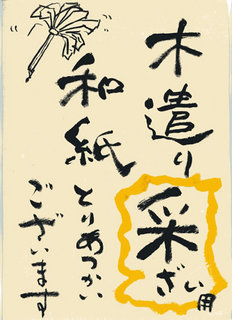 木遣り
采ざい用
和紙
とりあつかい
ございます